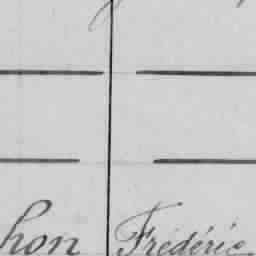 hon Frédéric